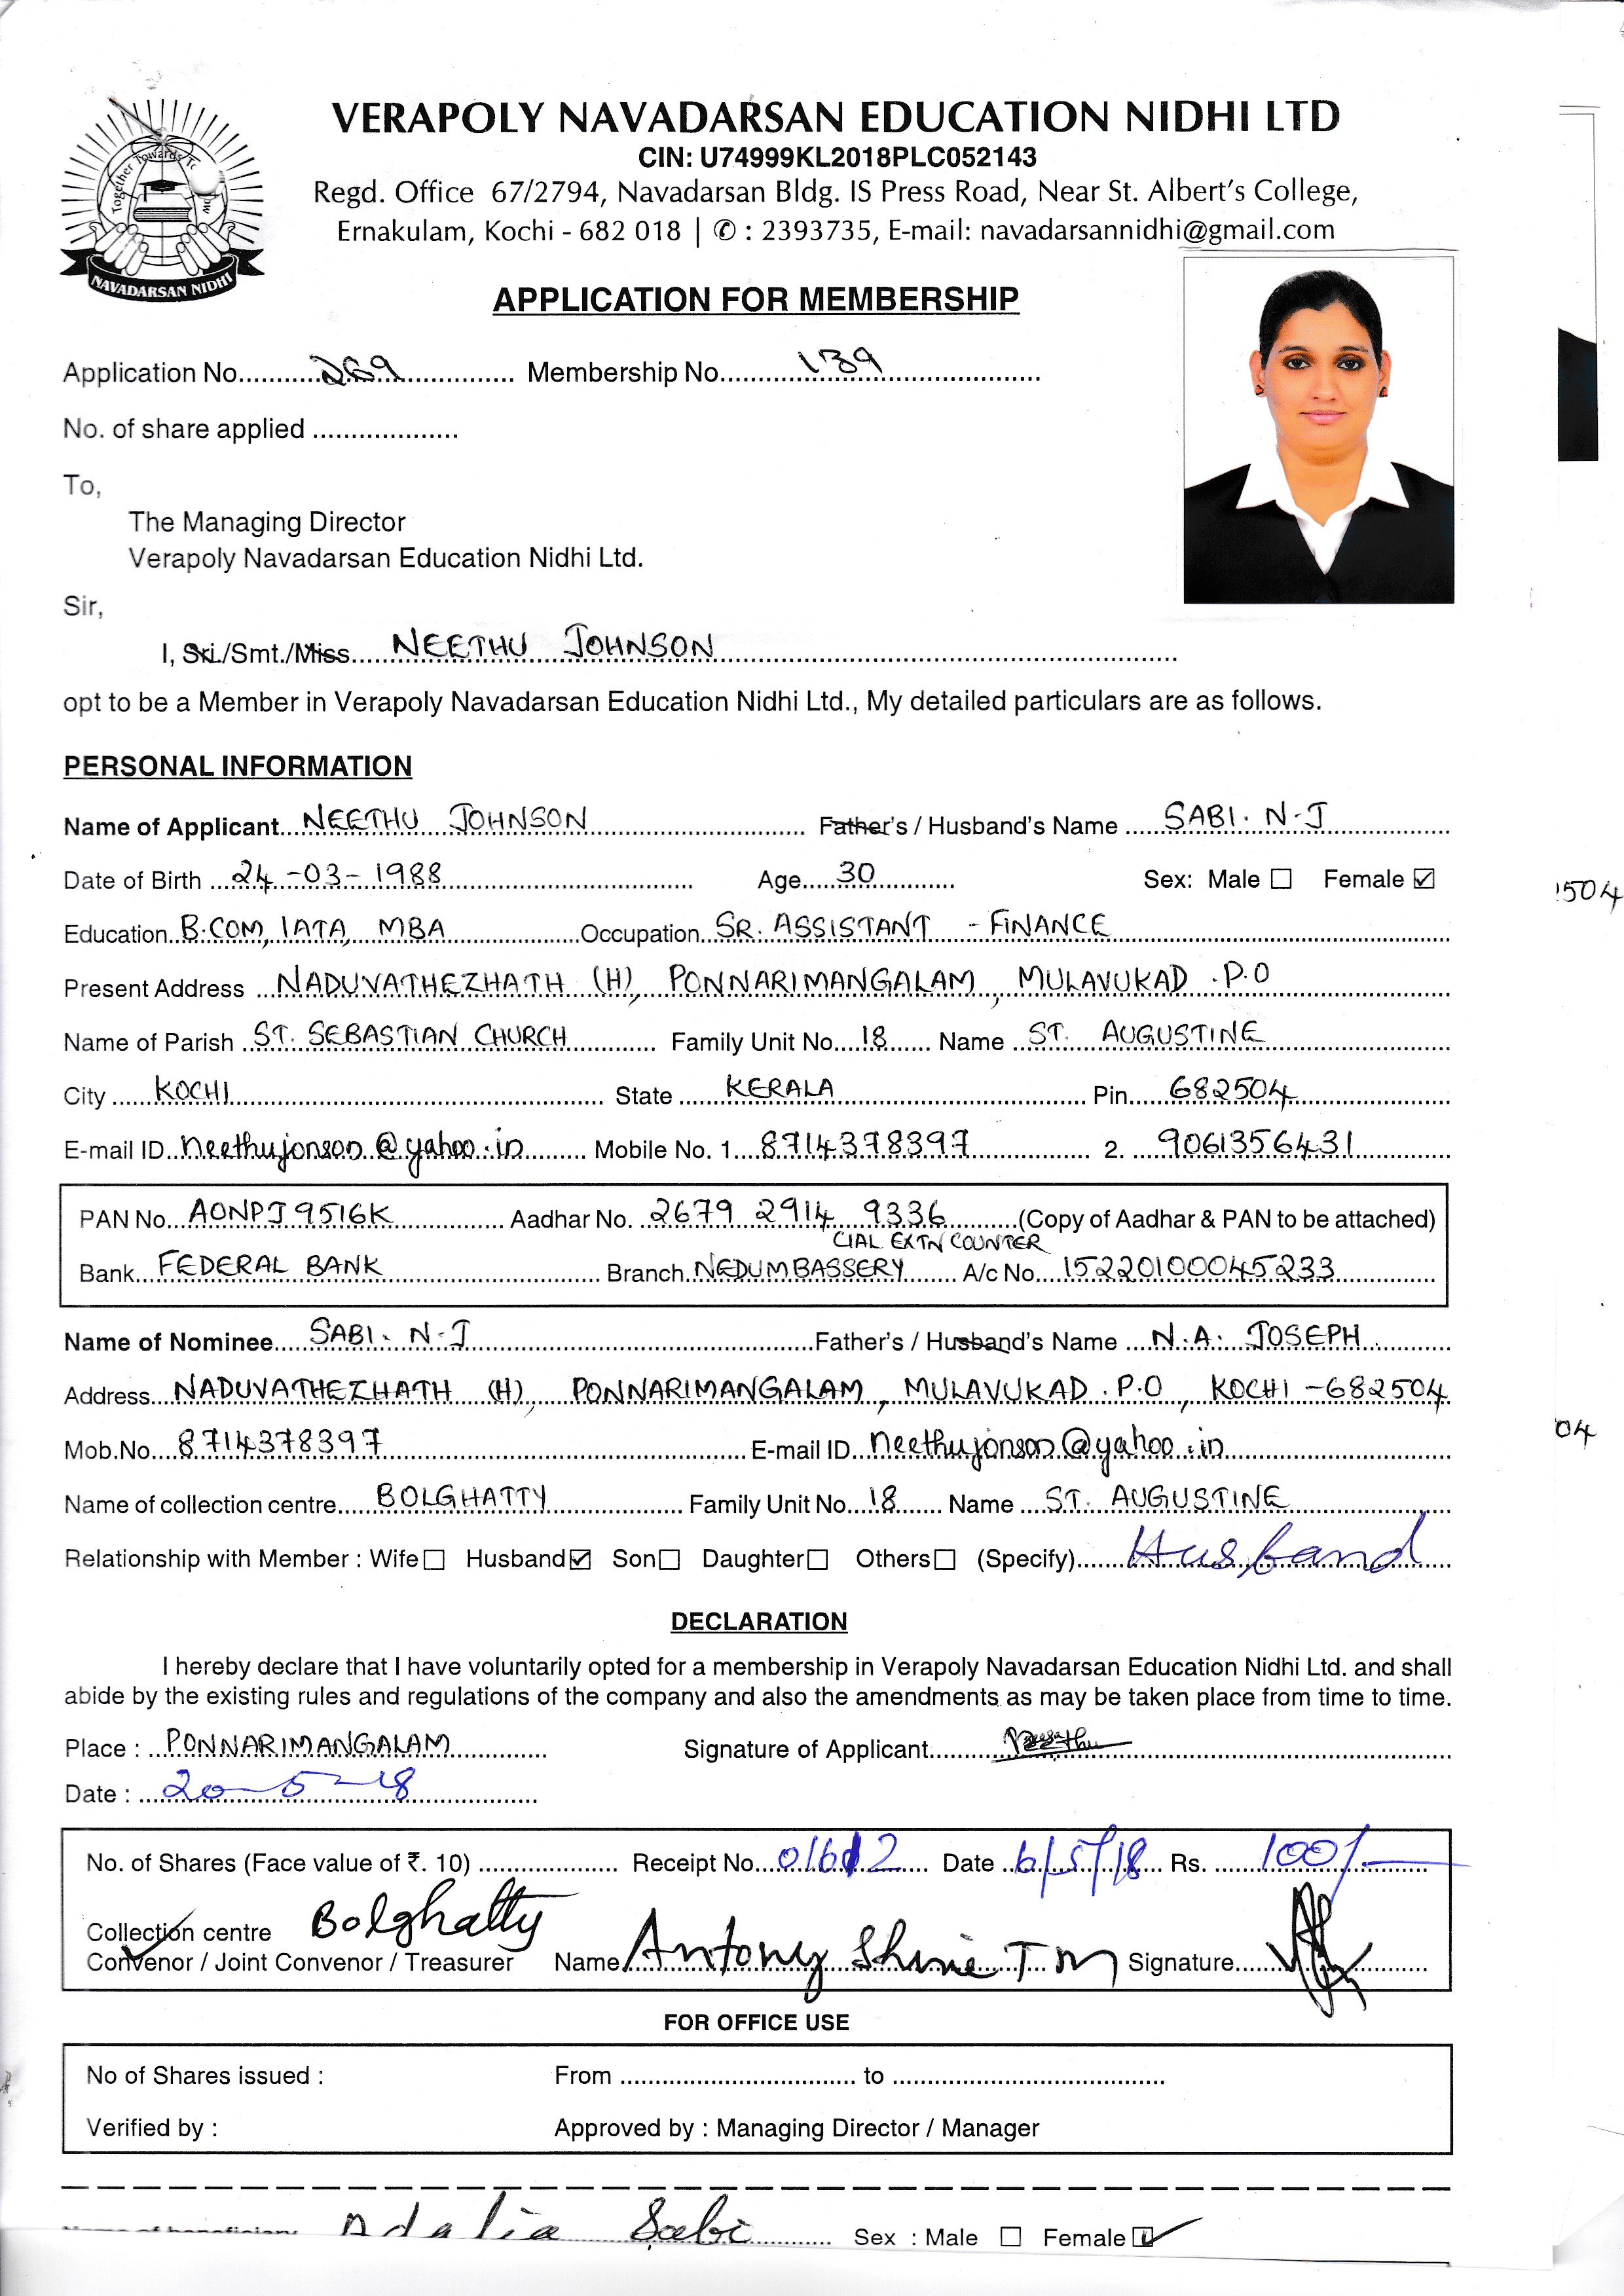 VERAPOLY NAVADARSAN EDUCATION NIDHI LTD
CIN: U74999KL2018PLC052143
Regd. Office 67/2794, Navadarsan Bldg. IS Press Road, Near St. Albert's College,
Ernakulam, Kochi - 682 018 | ✆ : 2393735, E-mail: navadarsannidhi@gmail.com
Together Towards
NAVADARSAN NIDHI
APPLICATION FOR MEMBERSHIP
Application No. 269 Membership No. 139
No. of share applied
To,
The Managing Director
Verapoly Navadarsan Education Nidhi Ltd.
Sir,
I, Sri./Smt./Miss. NEETHU JOHNSON
opt to be a Member in Verapoly Navadarsan Education Nidhi Ltd., My detailed particulars are as follows.
PERSONAL INFORMATION
Name of Applicant NEETHU JOHNSON Father's / Husband's Name SABI. N-J
Date of Birth 24-03-1988 Age 30 Sex: Male ☐ Female ☑
1504
Education B.COM, IATA, MBA Occupation SR. ASSISTANT - FINANCE
Present Address NADUVATHEZHATH (H), PONNARIMANGALAM, MULAVUKAD .P.O
Name of Parish ST. SEBASTIAN CHURCH Family Unit No. 18 Name ST. AUGUSTINE
City KOCHI State KERALA Pin 682504
E-mail ID neethujonson@yahoo.in Mobile No. 1 8714378397 2. 9061356431
PAN No. AONPJ9516K Aadhar No. 2679 2914 9336 (Copy of Aadhar & PAN to be attached)
CIAL EXTN COUNTER
Bank FEDERAL BANK Branch NEDUMBASSERY A/c No. 15220100045233
Name of Nominee SABI. N-J Father's / Husband's Name N.A. JOSEPH
Address NADUVATHEZHATH (H), PONNARIMANGALAM, MULAVUKAD .P.O, KOCHI -682504
Mob.No. 8714378397 E-mail ID neethujonson@yahoo.in
04
Name of collection centre BOLGHATTY Family Unit No. 18 Name ST. AUGUSTINE
Relationship with Member : Wife ☐ Husband ☑ Son ☐ Daughter ☐ Others ☐ (Specify) Husband
DECLARATION
I hereby declare that I have voluntarily opted for a membership in Verapoly Navadarsan Education Nidhi Ltd. and shall
abide by the existing rules and regulations of the company and also the amendments as may be taken place from time to time.
Place : PONNARIMANGALAM Signature of Applicant Neethu
Date : 20-5-18
No. of Shares (Face value of ₹. 10) Receipt No. 01612 Date 6/5/18 Rs. 100/-
Collection centre Bolghatty
Convenor / Joint Convenor / Treasurer Name Antony Shine T M Signature
FOR OFFICE USE
No of Shares issued : From to
Verified by : Approved by : Managing Director / Manager
Name of beneficiary Adalia Sabi Sex : Male ☐ Female ☑